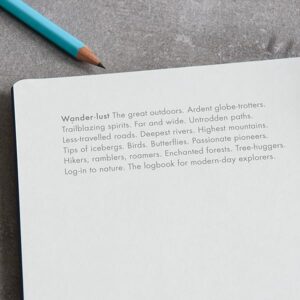 Wander-lust The great outdoors. Ardent globe-trotters.
Trailblazing spirits. Far and wide. Untrodden paths.
Less-travelled roads. Deepest rivers. Highest mountains.
Tips of icebergs. Birds. Butterflies. Passionate pioneers.
Hikers, ramblers, roamers. Enchanted forests. Tree-huggers.
Log-in to nature. The logbook for modern-day explorers.